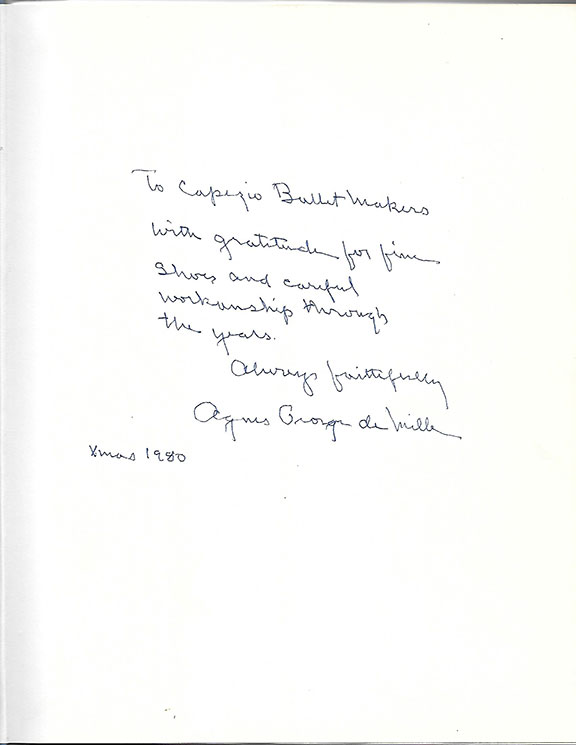 To Capezio Ballet Makers
with gratitude for fine
shoes and careful
workmanship through
the years.
Always faithfully
Agnes George de Mille
Xmas 1980